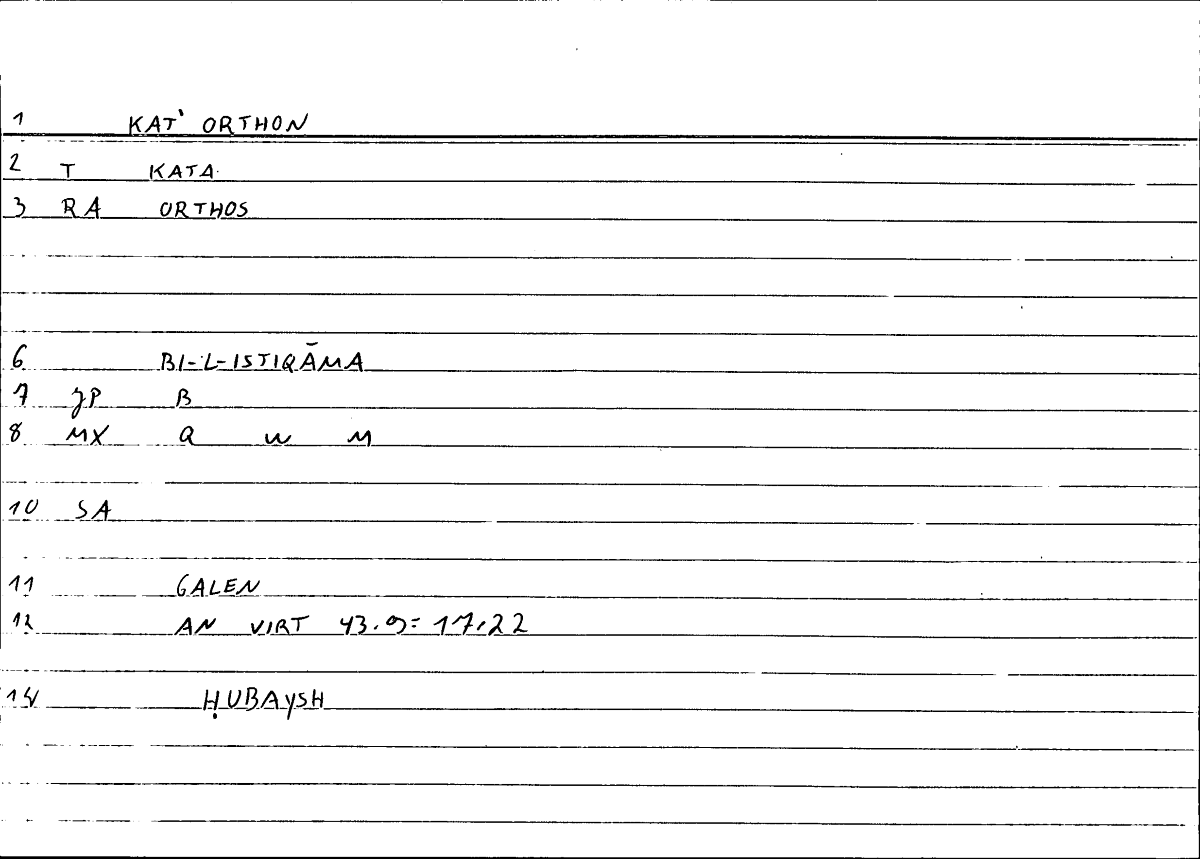 1 KAT' ORTHON
2 T KATA
3 RA ORTHOS
6 BI-L-ISTIQĀMA
7 JP B
8 MX Q W M
10 SA
11 GALEN
12 AN VIRT 43.9=17.22
14 ḤUBAYSH